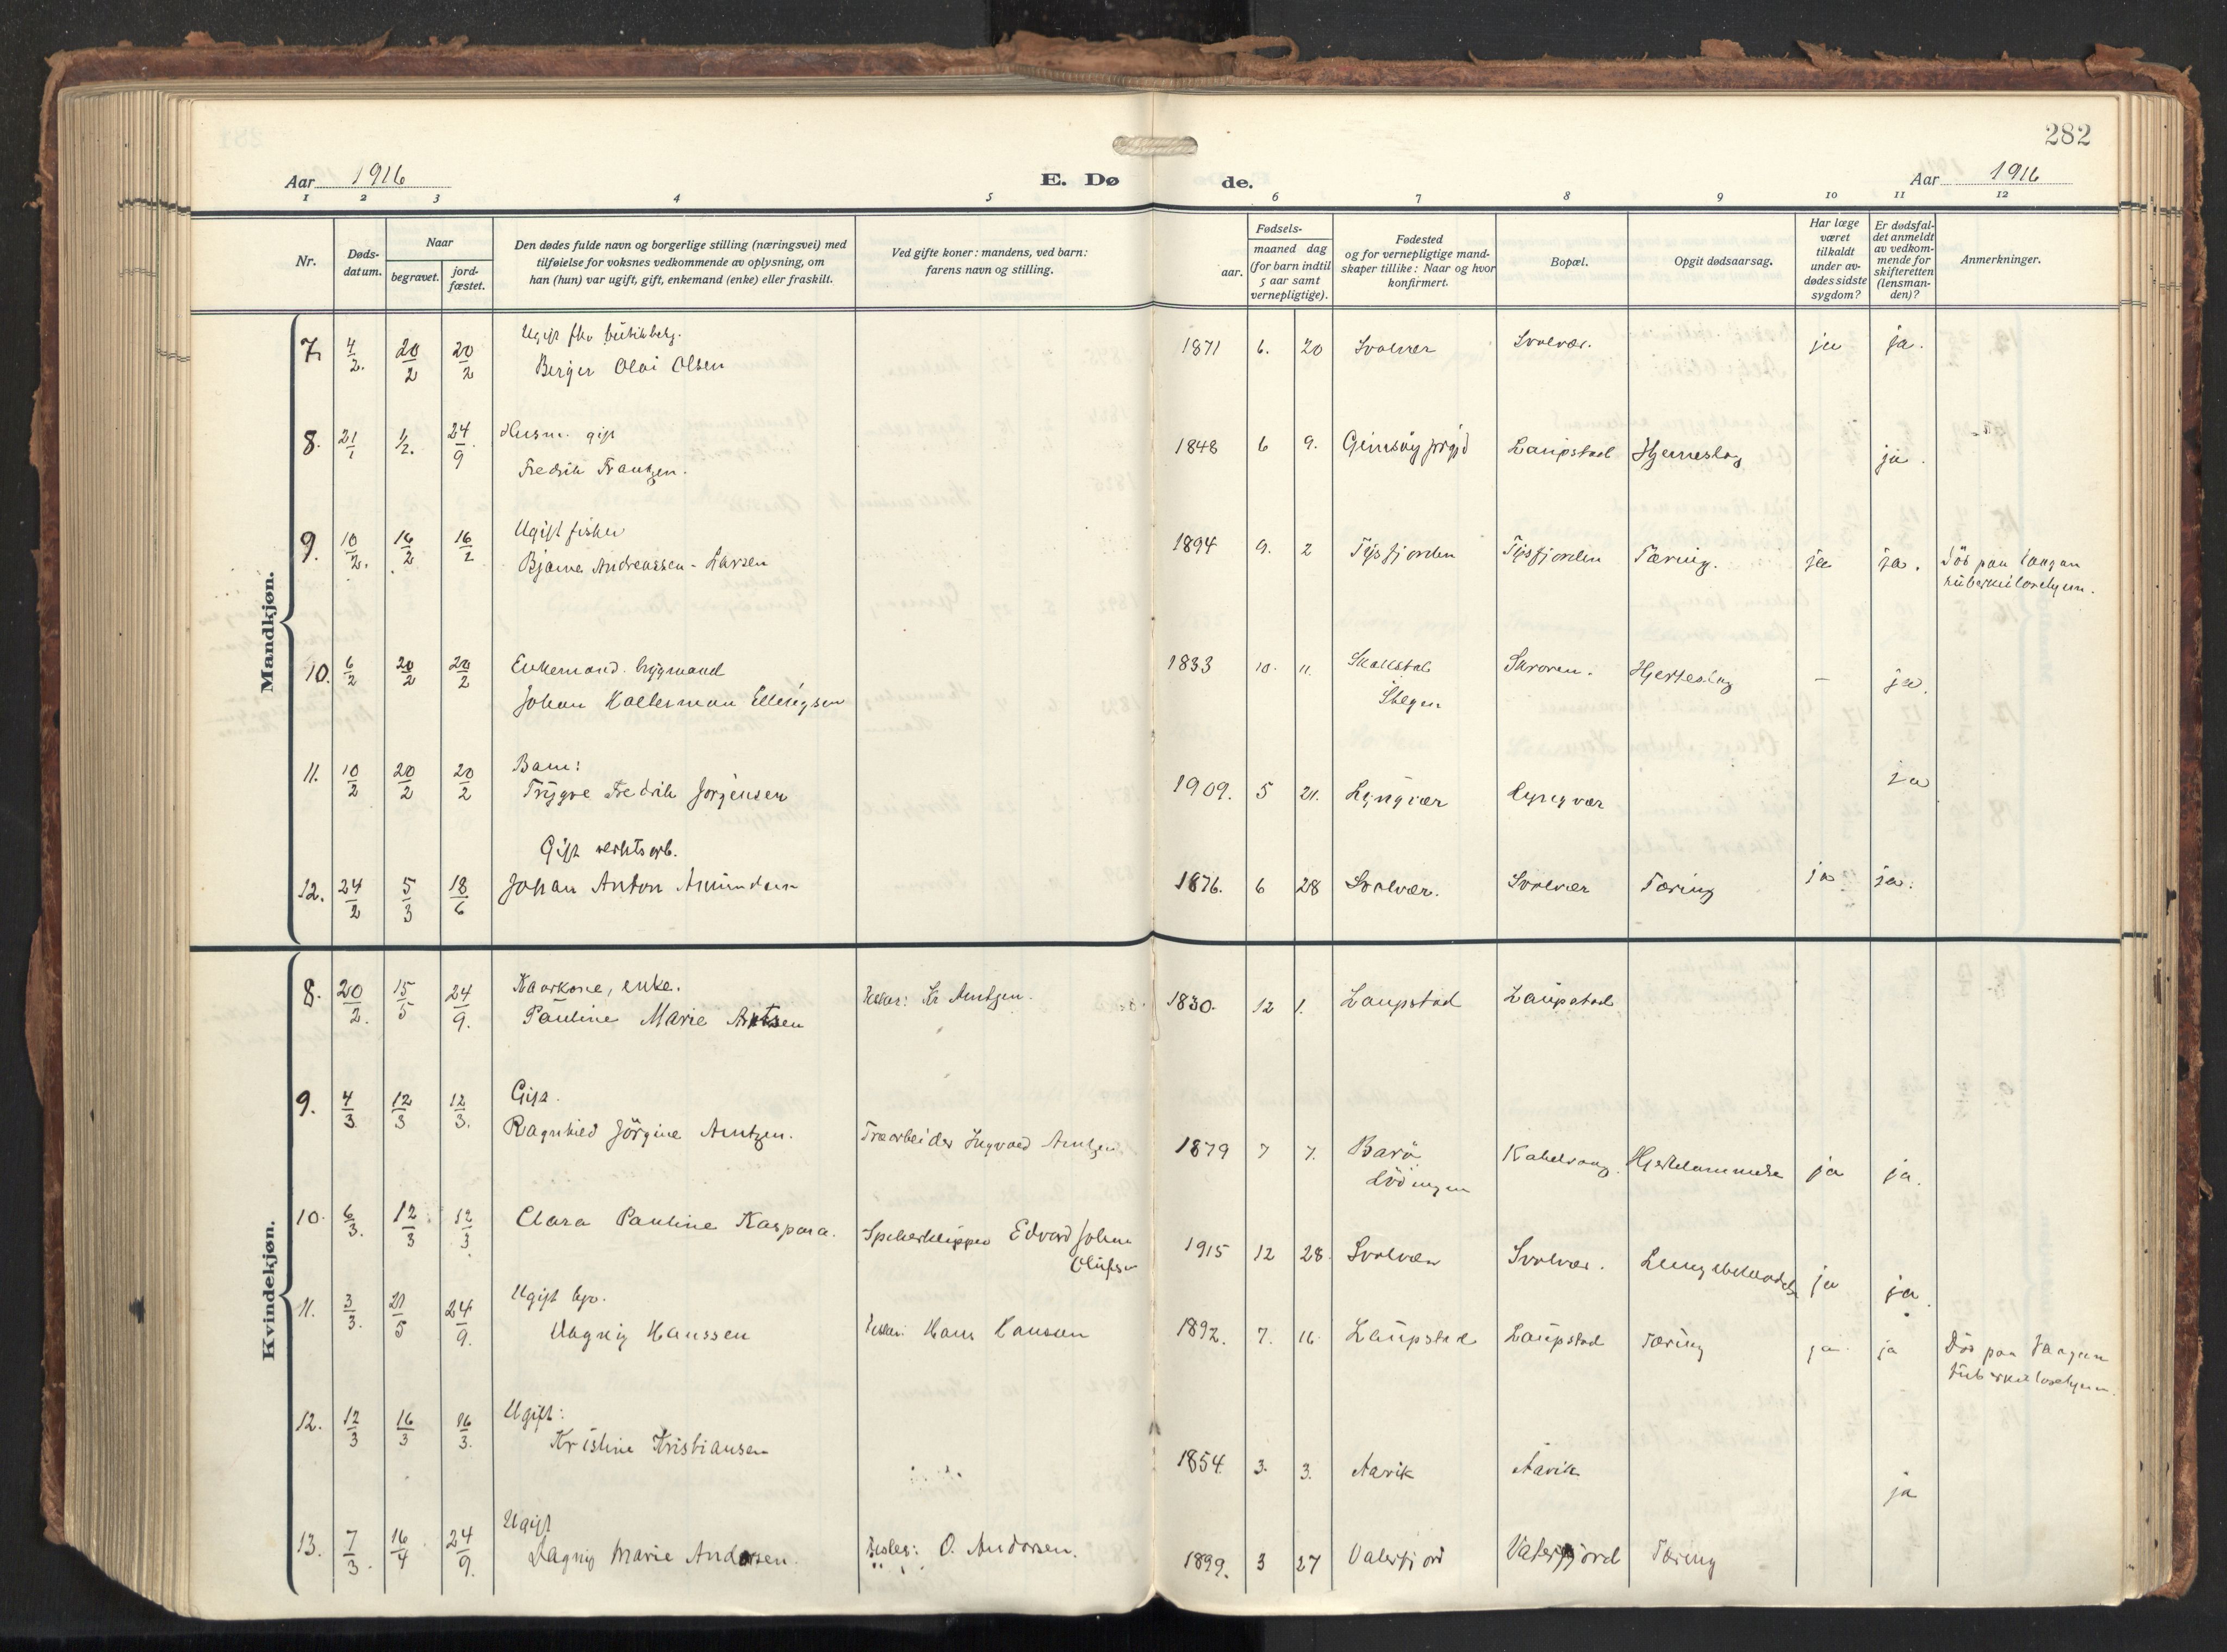 282
Aar 1916
E. Dø
de.
Aar 1916
1 2 3 4 5 6 7 8 9 10 11 12
Nr.
Døds-
datum.
Naar
begravet.
jord-
fæstet.
Den dødes fulde navn og borgerlige stilling (næringsvei) med
tilføielse for voksnes vedkommende av oplysning, om
han (hun) var ugift, gift, enkemand (enke) eller fraskilt.
Ved gifte koner: mandens, ved barn:
farens navn og stilling.
Fødsels-
aar.
maaned dag
(for barn indtil
5 aar samt
vernepligtige).
Fødested
og for vernepligtige mand-
skaper tillike: Naar og hvor
konfirmert.
Bopæl.
Opgit dødsaarsag.
Har læge
været
tilkaldt
under av-
dødes sidste
sygdom?
Er dødsfal-
det anmeldt
av vedkom-
mende for
skifteretten
(lensman-
den)?
Anmerkninger.
Mandkjøn.
7. 4/2. 20/2 20/2 Ugift
Berger Olai Olsen
1871 6. 20 Svolvær Svolvær. ja ja.
8. 21/1 1/2. 24/9 Husm. gift
Fredrik Frantzen.
1848 6 9. Gimsøy prgjd Laupstad Hjerneslag ja.
9. 10/2. 16/2 16/2 Ugift fisker
Bjarne Andreassen-Larsen
1894 9. 2 Tysfjorden Tysfjorden Tæring. ja ja. Död paa Vaagan
tuberkuloschjem.
10. 6/2 20/2 20/2 Enkemand. bygmand
Johan Ellingsen
1833 10. 11. Skutstad
Stegen
Skroven. Hjerteslag – ja.
11. 10/2 20/2 20/2 Barn:
Trygve Fredrik Jørgensen
1909. 5 21. Lyngvær Lyngvær ja
Gift verkstarb.
12. 24/2 5/3 18/6 Johan Anton Amundsen
1876. 6 28 Svolvær. Svolvær Tæring ja ja.
Kvindekjøn.
8. 20/2. 15/5 24/9. Kaarkone, enke.
Pauline Marie Arntsen
Kr Arntzen.
1830. 12 1. Laupstad Laupstad
9. 4/3 12/3 12/3. Gift.
Ragnhild Jörgine Arntzen.
Træarbeider Ingvald Arntzen
1879 7 7. Barö
Lödingen
Kabelvaag. Hjertelammelse ja ja.
10. 6/3. 12/3 12/3 Clara Pauline Kaspara.
Edvard Johan
Olufsen
1915 12 28. Svolvær Svolvær. Lungebetændelse ja ja.
11. 3/3. 21/5 24/9. Ugift
Dagny Hanssen
Hans Hansen
1892. 7. 16 Laupstad Laupstad Tæring ja. ja Död paa Vaagan
tuberkuloschjem.
12. 12/3 16/3 16/3. Ugift:
Kristine Kristiansen
1854. 3. 3. Aavik Aavik ja
13. 7/3. 16/4 24/9. Ugift
Dagny Marie Andorsen.
O. Andorsen.
1899. 3 27 Vaterfjord Vaterfjord Tæring